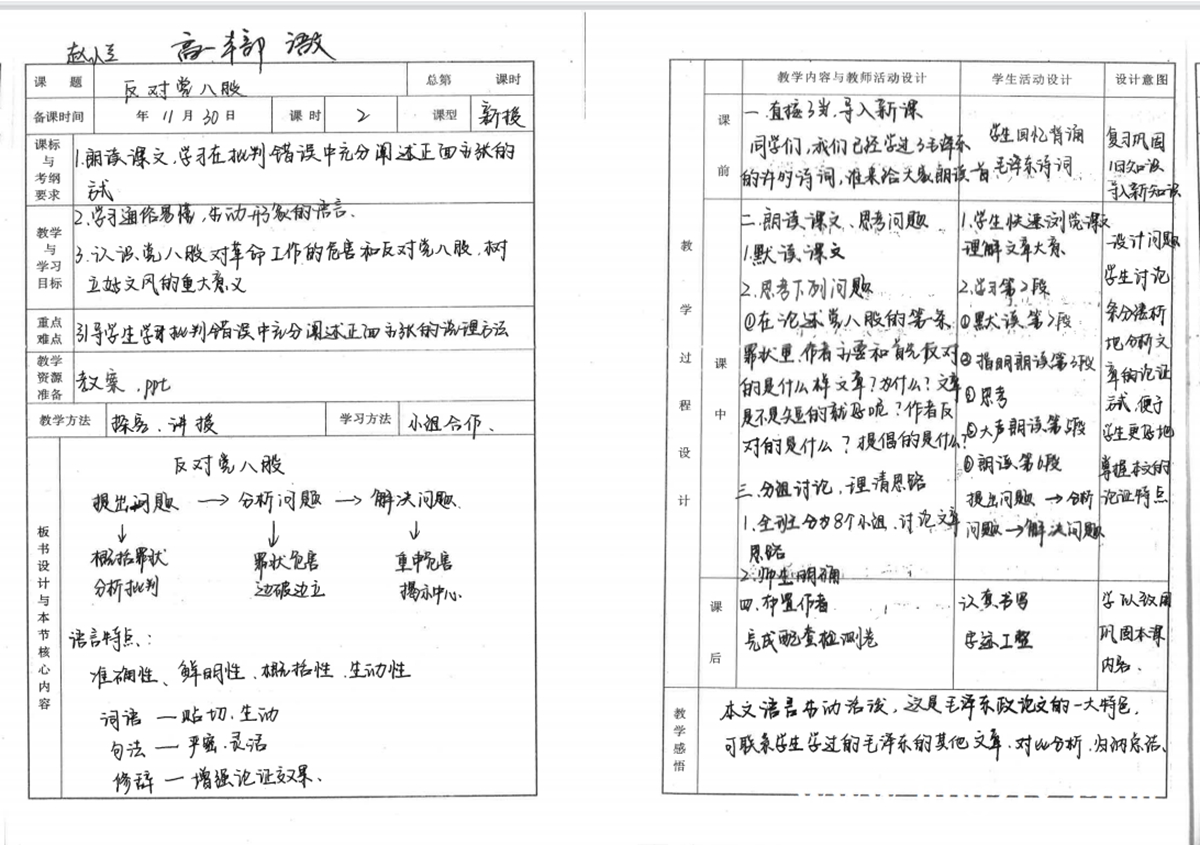 高一本部 语文
课题 反对党八股 总第 课时
备课时间 年 11 月 30 日 课时 2 课型 新授
课标与考纲要求
1.朗读课文,学习在批判错误中充分阐述正面主张的
试
教学与学习目标
2.学习通俗易懂,生动形象的语言.
3.认识党八股对革命工作的危害和反对党八股,树
立好文风的重大意义
重点难点 引导学生学习批判错误中充分阐述正面主张的说理方法
教学资源准备 教案.ppt
教学方法 探究.讲授 学习方法 小组合作、
板书设计与本节核心内容
反对党八股
提出问题 → 分析问题 → 解决问题
↓ ↓ ↓
概括罪状 罪状危害 重申危害
分析批判 边破边立 揭示中心.
语言特点:
准确性、鲜明性.概括性.生动性
词语 — 贴切.生动
句法 — 严密.灵活
修辞 — 增强论证效果.
教学过程设计
教学内容与教师活动设计 学生活动设计 设计意图
课前
一.直接导入,导入新课
同学们,我们已经学过了毛泽东
的许多诗词,谁来给大家朗读一首
学生回忆背诵
毛泽东诗词
复习巩固
旧知识
导入新知识
课中
二.朗读课文、思考问题
1.默读课文
2.思考下列问题
①在论述党八股的第一条
罪状里,作者主要和首先反对
的是什么样文章?为什么?文章
是不是短的就好呢?作者反
对的是什么?提倡的是什么?
三.分组讨论,理清思路
1.全班分为8个小组.讨论文章
思路
2.师生明确
1.学生快速浏览课文
理解文章大意
2.学习第2段
①默读第2段
②指明朗读第3段
③思考
④大声朗读第5段
⑤朗读第6段
提出问题 → 分析
问题 → 解决问题
设计问题
学生讨论
条分缕析
地分析文
章的论证
试,便于
学生更好地
掌握本文的
论证特点
课后
四.布置作者
完成配套检测卷
认真书写
字迹工整
学以致用
巩固本课
内容.
教学感悟
本文语言生动活泼,这是毛泽东政论文的一大特色,
可联系学生学过的毛泽东的其他文章.对比分析.归纳总结、